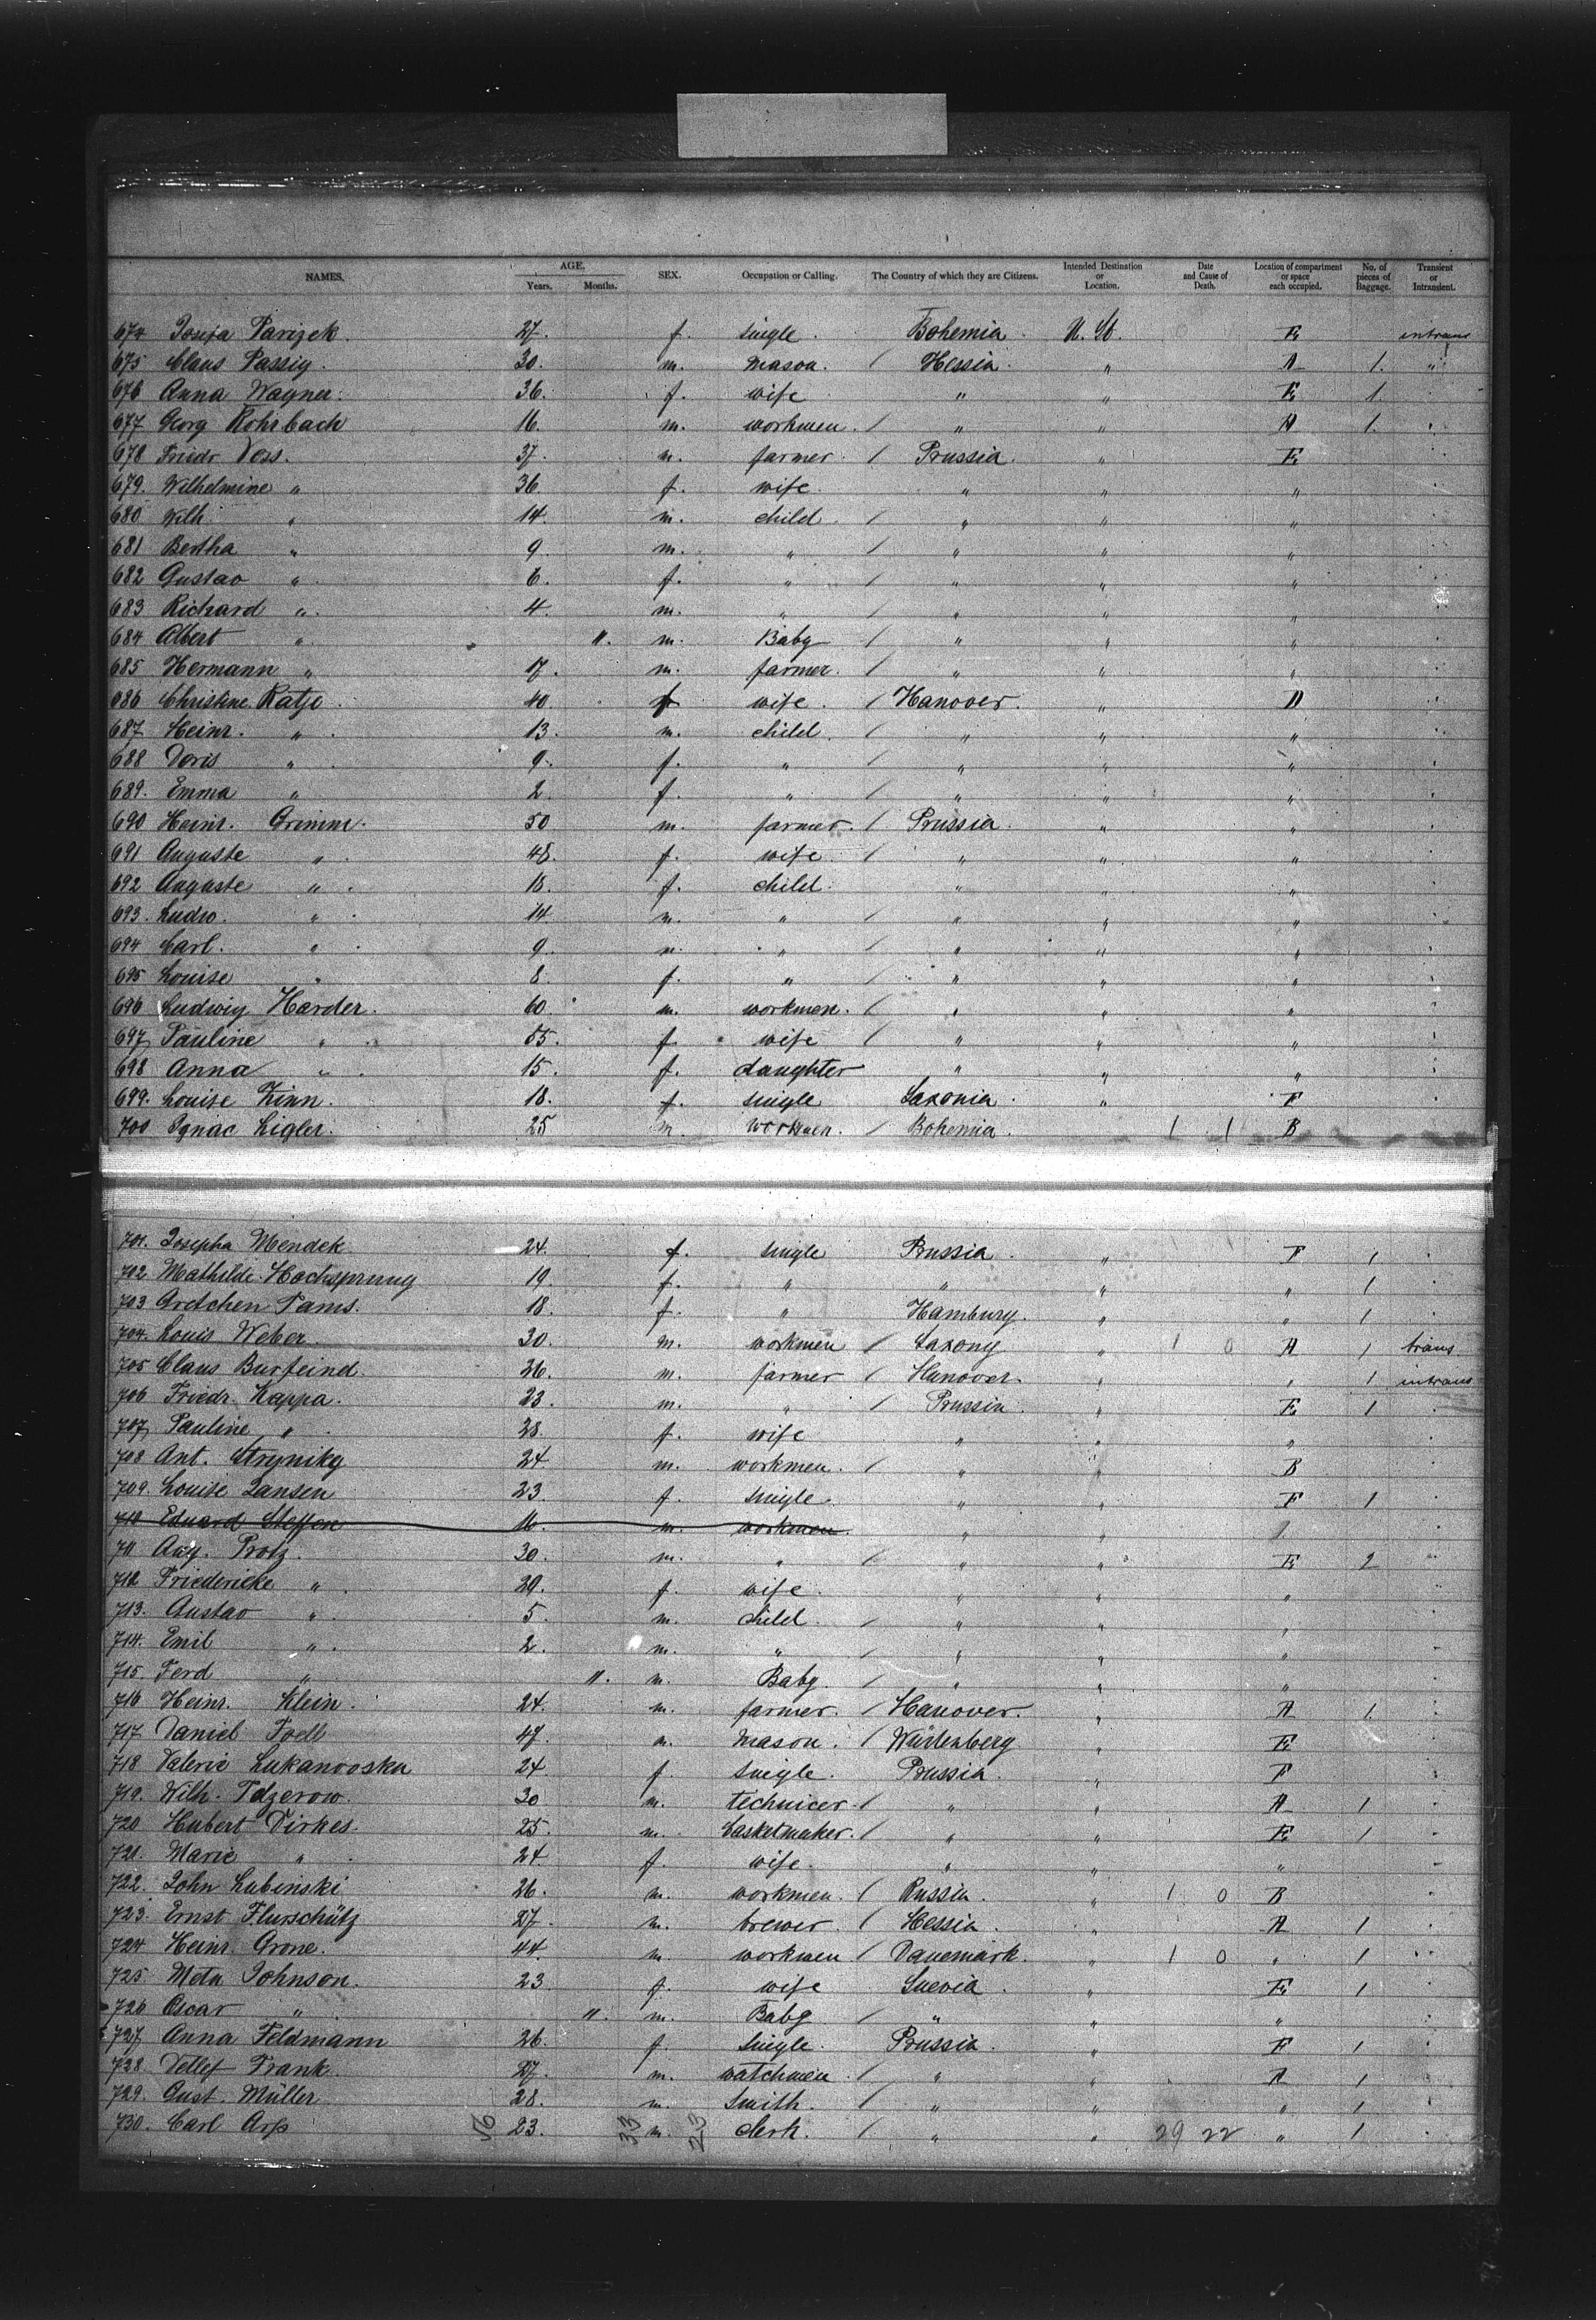 NAMES. AGE. Years. Months. SEX. Occupation or Calling. The Country of which they are Citizens. Intended Destination or Location. Date and Cause of Death. Location of compartment or space each occupied. No. of pieces of Baggage. Transient or Intransient.
674 Josefa Parizek. 27. f. single. Bohemia U. St. E intrans
675 Claus Passig. 30. m. mason. / Hessia. " A 1. "
676 Anna Wagner. 36. f. wife " " E 1.
677 Georg Rohrbach 16. m. workmen. / " " A 1.
678 Friedr Voss. 37. m. farmer / Prussia. " E
679. Wilhelmine " 36. f. wife. " " "
680 Wilh. " 14. m. child. / " " "
681 Bertha " 9. m. " / " " "
682 Gustav " 6. f. " / " " "
683 Richard " 4. m. " / " " "
684 Albert " 11. m. Baby / " " "
685 Hermann " 17. m. farmer. / " " "
686 Christine Katje 40. f wife. / Hanover. " A
687 Heinr. " 13. m. child. / " " "
688 Doris " 9. f. " / " " "
689. Emma " 2. f. " / " " "
690 Heinr. Grimm. 50 m. farmer. / Prussia. " "
691 Auguste " 48. f. wife / " " "
692 Auguste " 18. f. child. " " "
693. Ludw. " 14. m. " / " " "
694 Carl. " 9. m. " / " " "
695 Louise " 8. f. " / " " "
696 Ludwig Harder. 60. m. workmen. / " " "
697 Pauline " 55. f. wife / " " "
698 Anna " 15. f. daughter " " "
699. Louise Zinn. 18. f. single Saxonia. " F
700 Ignac Ligler. 25 m. workmen. / Bohemia. 1 1 B
701. Josepha Mendek. 24. f. single Prussia. " F 1
702 Mathilde Hochsprung 19. f. " " " " 1
703 Gretchen Pams. 18. f. " Hamburg. " " 1
704. Louis Weber. 30. m. workmen / Saxony " 1 0 A 1 trans
705 Claus Burfeind. 26. m. farmer / Hanover. " " 1 intrans
706 Friedr. Kappa. 23. m. " / Prussia " E 1
707 Pauline " 28. f. wife " " "
708 Ant. Strynikg 24. m. workmen. / " " B
709. Louise Jansen 23. f. single. " " F 1
710 Eduard Steffen 16. m. workmen. " "
711 Aug. Protz. 30. m. " / " " E 2
712 Friedericke " 29. f. wife. " " "
713. Gustav " 5. m. child. / " " "
714. Emil " 2. m. " / " " "
715. Ferd " 11. m. Baby. / " " "
716 Heinr. Klein. 24. m. farmer. / Hanover. " A 1.
717 Daniel Foell 47. m. mason. / Würtenberg " E
718 Valerie Lukanovska 24 f. single. Prussia. " F
719. Wilh. Tdzerow. 30 m. technicer. / " " A 1
720 Hubert Dirkes. 25 m. basketmaker. / " " E 1
721. Marie " 24. f. wife. " " "
722. John Lubinski 26. m. workmen. / Russia. " 1 0 B
723. Ernst Flurschütz 27. m. brewer. / Hessia. " A 1
724 Heinr. Grone. 44. m. workmen / Danemark. " 1 0 " 1
725. Meta Johnson. 23 f. wife Suevia. " E 1
726 Oscar " 11. m. Baby / " " "
727 Anna Feldmann 26. f. single. Prussia. " F 1
728. Detlef Frank. 27. m. watchmen. / " " A 1
729. Gust. Müller. 28. m. smith. / " " " 1
730. Carl Arp 56 23. 33 m. 23 clerk. / " " 29 22 " 1